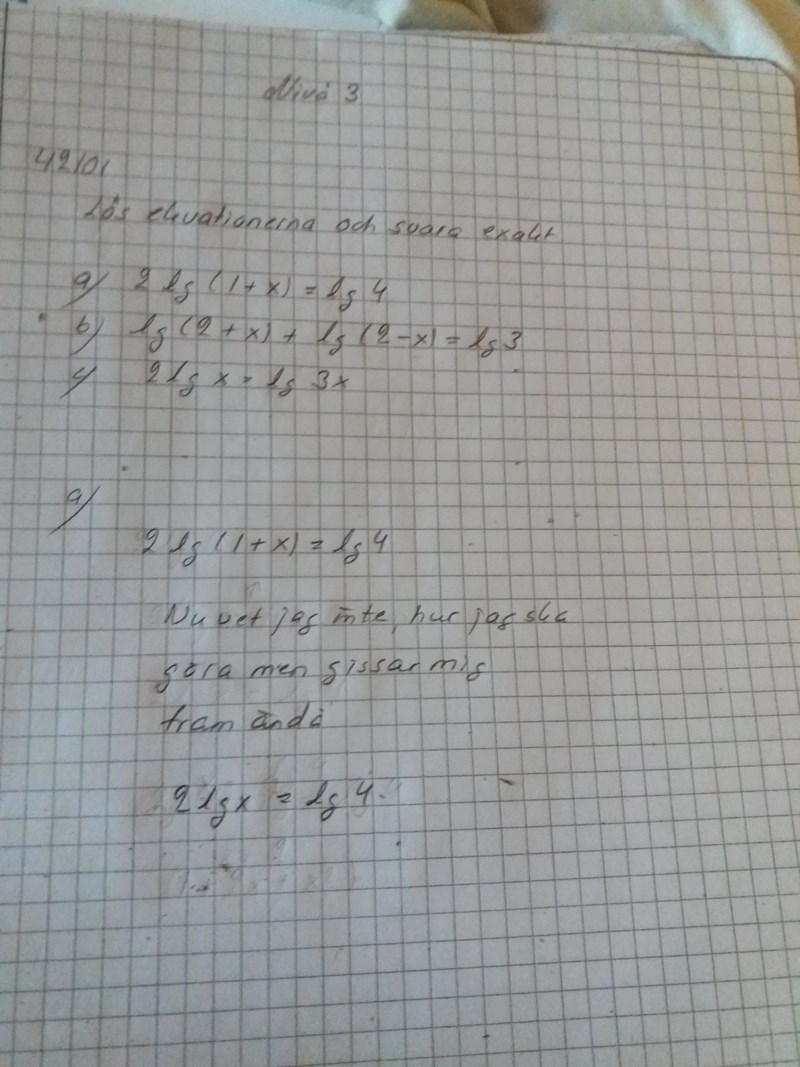 Nivå 3
42101
Lös ekvationerna och svara exakt
a) 2 lg (1+x) = lg 4
b) lg (2+x) + lg (2-x) = lg 3
c) 2 lg x = lg 3x
a)
2 lg (1+x) = lg 4
Nu vet jag inte, hur jag ska
göra men gissar mig
fram ändå
2 lg x = lg 4